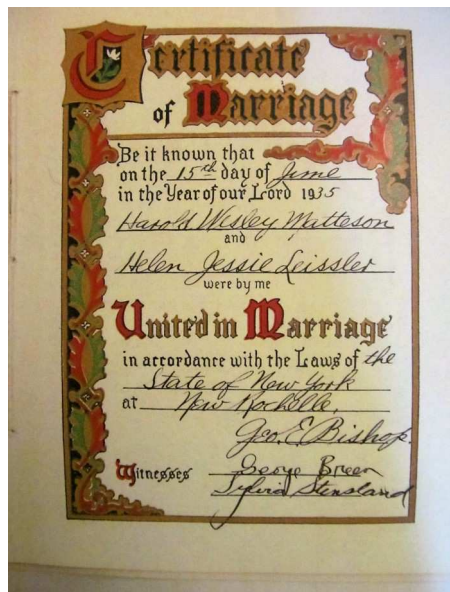 Certificate
of Marriage
Be it known that
on the 15th day of June
in the Year of our Lord 1935
Harold Wesley Matteson
and
Helen Jessie Leissler
were by me
United in Marriage
in accordance with the Laws of the
State of New York
at New Rochelle.
Geo. E. Bishop
Witnesses George Breen
Sylvia Stensland